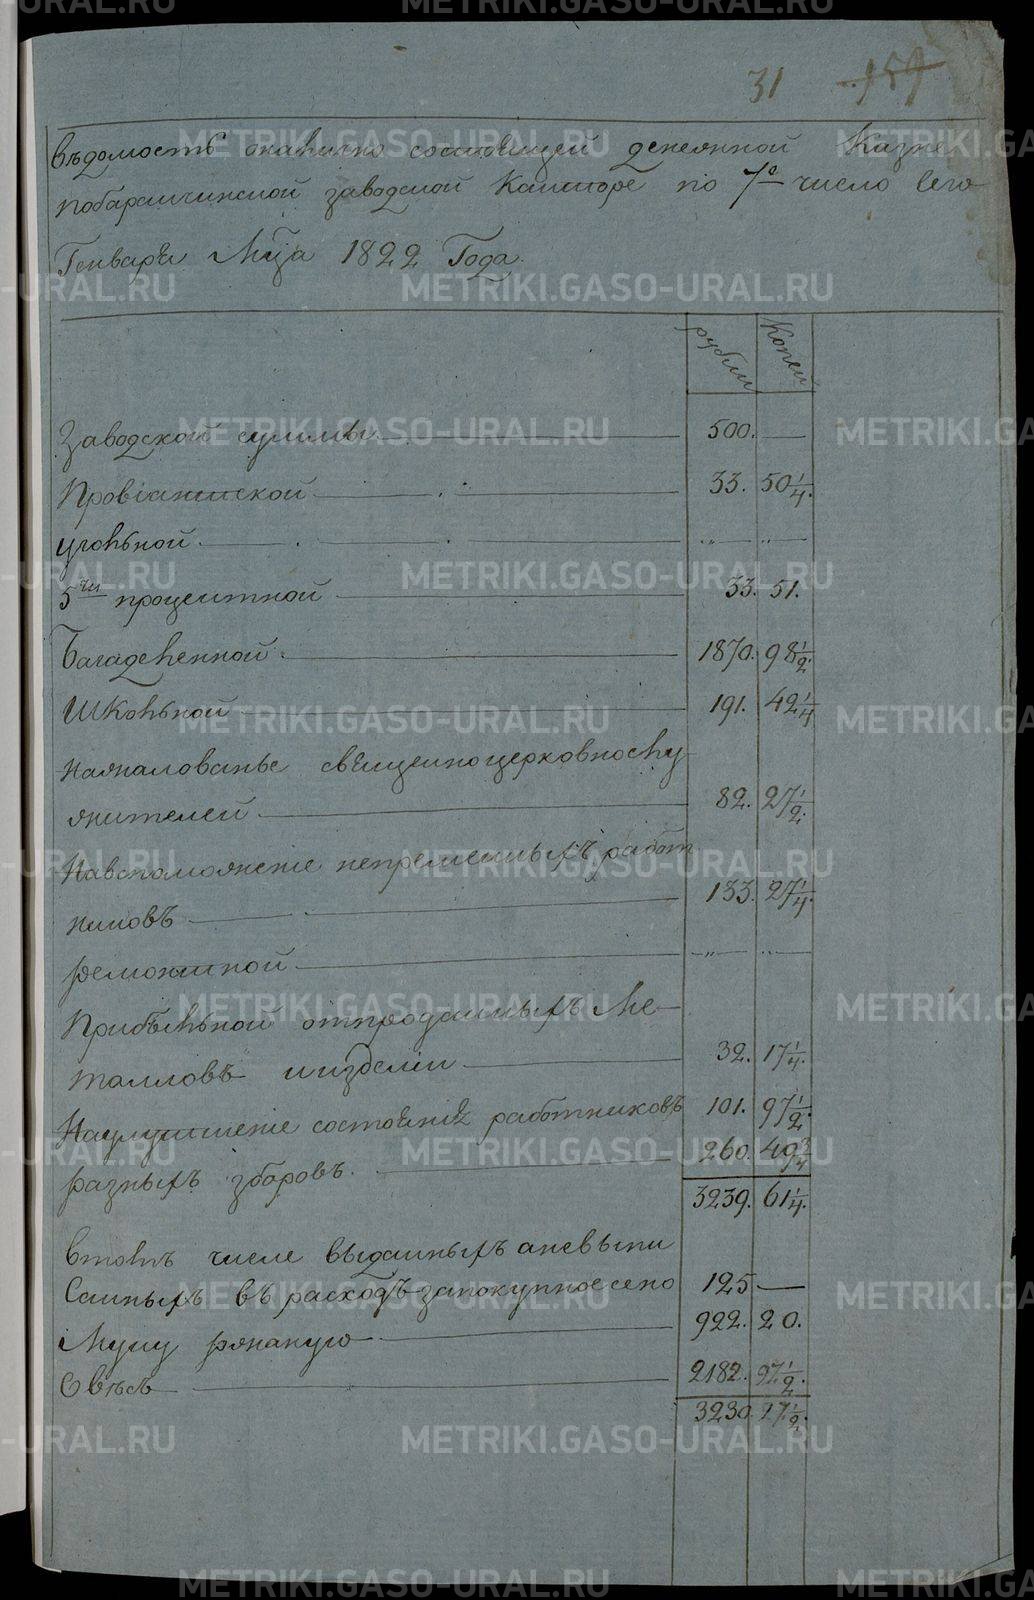 31 159
Ведомость онаlично состоящей денежной Казне
побаранчинской заводской Канторе по 7е число сего
Генваря Мца 1822 Года.
рубли Копей
Заводской суммы 500. —
Провiантской 33. 50 1/4.
угольной " — " —
5ти процентной 33. 51.
Багаделенной 1870. 98 1/2.
Школьной 191. 42 1/4
Нажалованье священноцерковнослу
жителей 82. 27 1/2.
Навспоможенiе непременныхъ работ
никовъ 133. 27 1/4.
ремонтной — " — " —
Прибыльной отпроданныхъ Ме-
талловъ иизделiи 32. 17 1/4.
Наулутшенiе состоянiя работниковъ 101. 97 1/2.
разныхъ зборовъ 260. 49 3/4
3239. 61 1/4.
втомъ числе выданныхъ аневыпи
санныхъ въ расходъ запокупноесено 125 —
Муку ржаную 922. 20.
Овесъ 2182. 97 1/2.
3230. 27 1/2.
METRIKI.GASO-URAL.RU